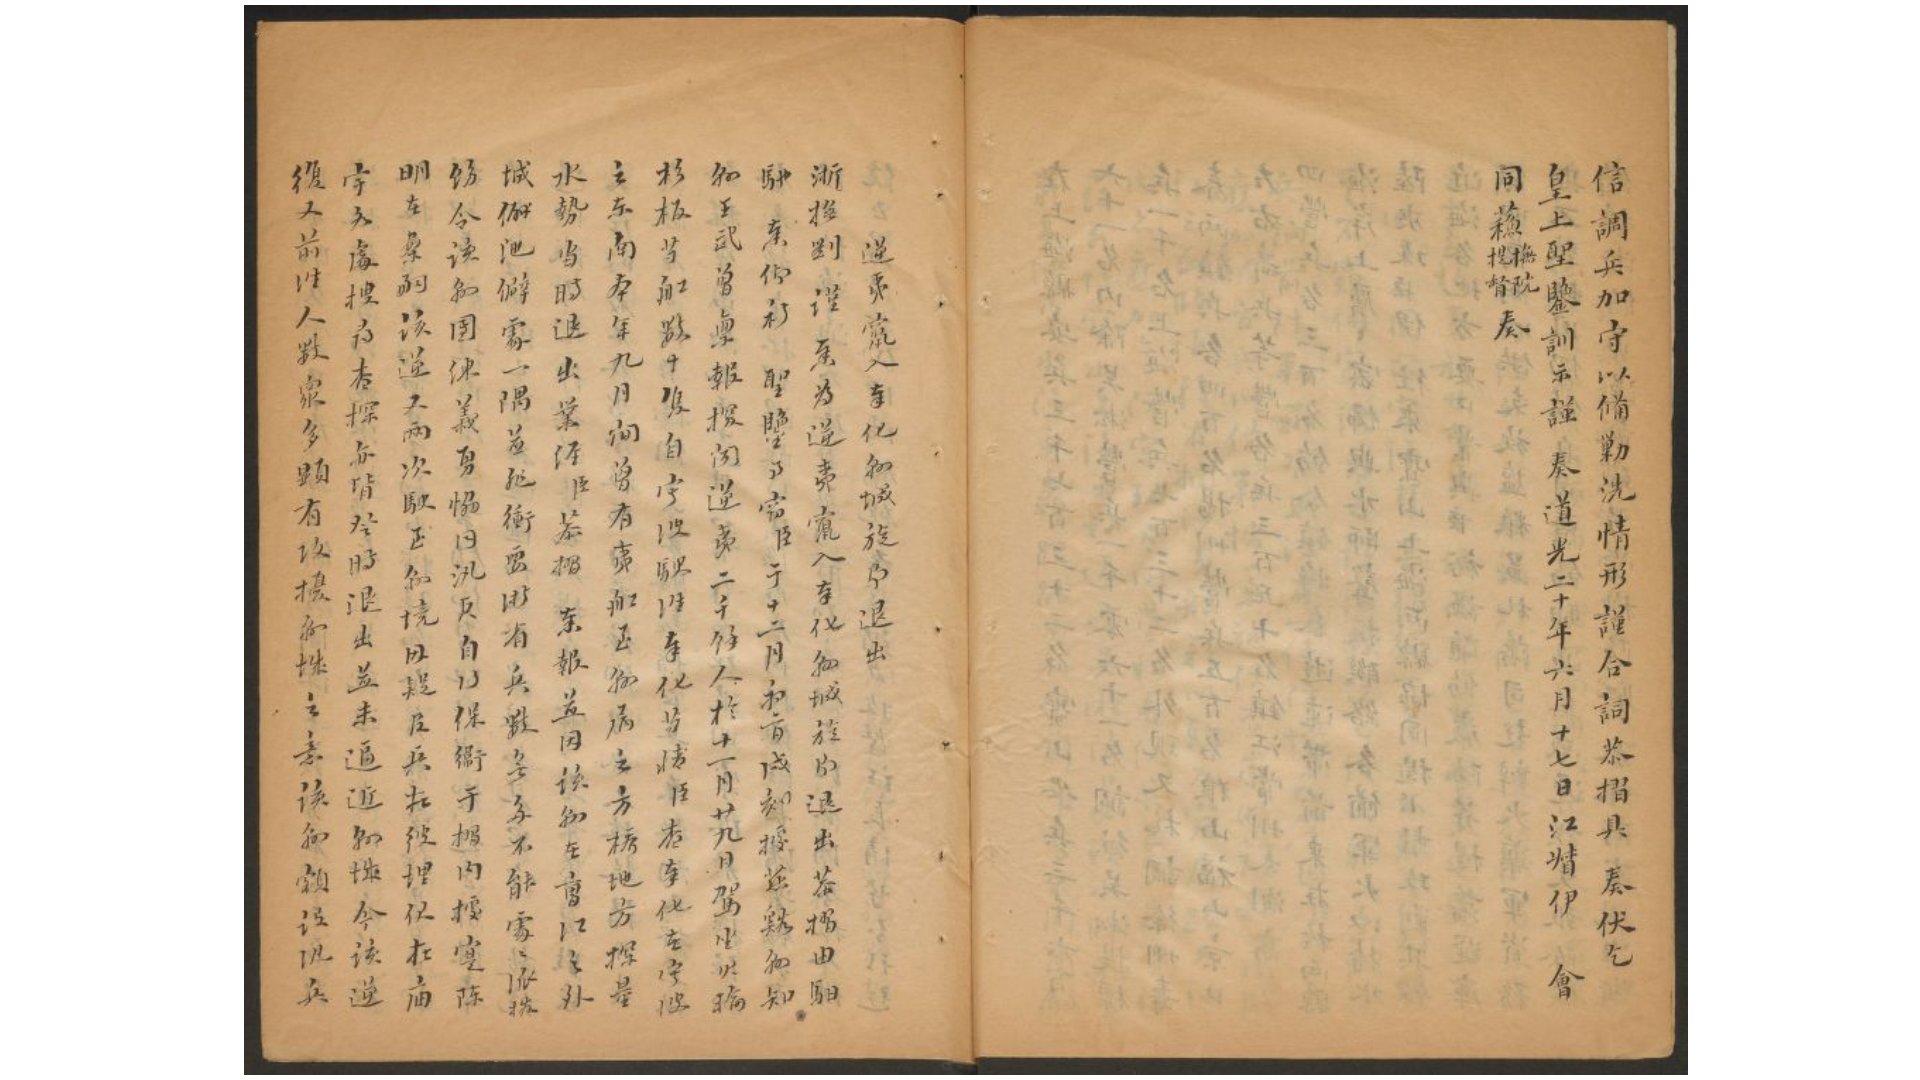 信調兵加守以俻勦洗情形謹合詞恭摺具 奏伏乞
皇上聖鑒訓示謹 奏道光二十年六月十七日江督伊 會
同蘇撫院提督奏
逆夷竄入奉化縣城旋即退出
浙撫劉 謹 奏為逆夷竄入奉化縣城旋即退出恭摺由馹
馳 奏仰祈 聖鑒事窃臣于十二月初 戌刻據慈谿縣知
縣王武曾稟報探聞逆夷二千餘人於十一月廿九日駕坐火輪
杉板等船數十隻自寧波駛往奉化等情臣查奉化在寧波
之东南本年九月間曾有夷船至縣屬之方橋地方探量
水勢当時退出業經臣恭摺 奏報並因該縣在曹江之外
城僻 處一隅並非衝要浙省兵數無多不能處處派撥
飭令該縣団練義勇協同汛兵自行保衛于摺内據實陳
明在案嗣該逆又兩次駛至縣境因疑臣兵於彼埋伏在庙
宇多處搜 查探亦皆登時退出並未逼近縣城今該逆
復又前往人數衆多顕有攻擾縣城之意該縣額設汛兵